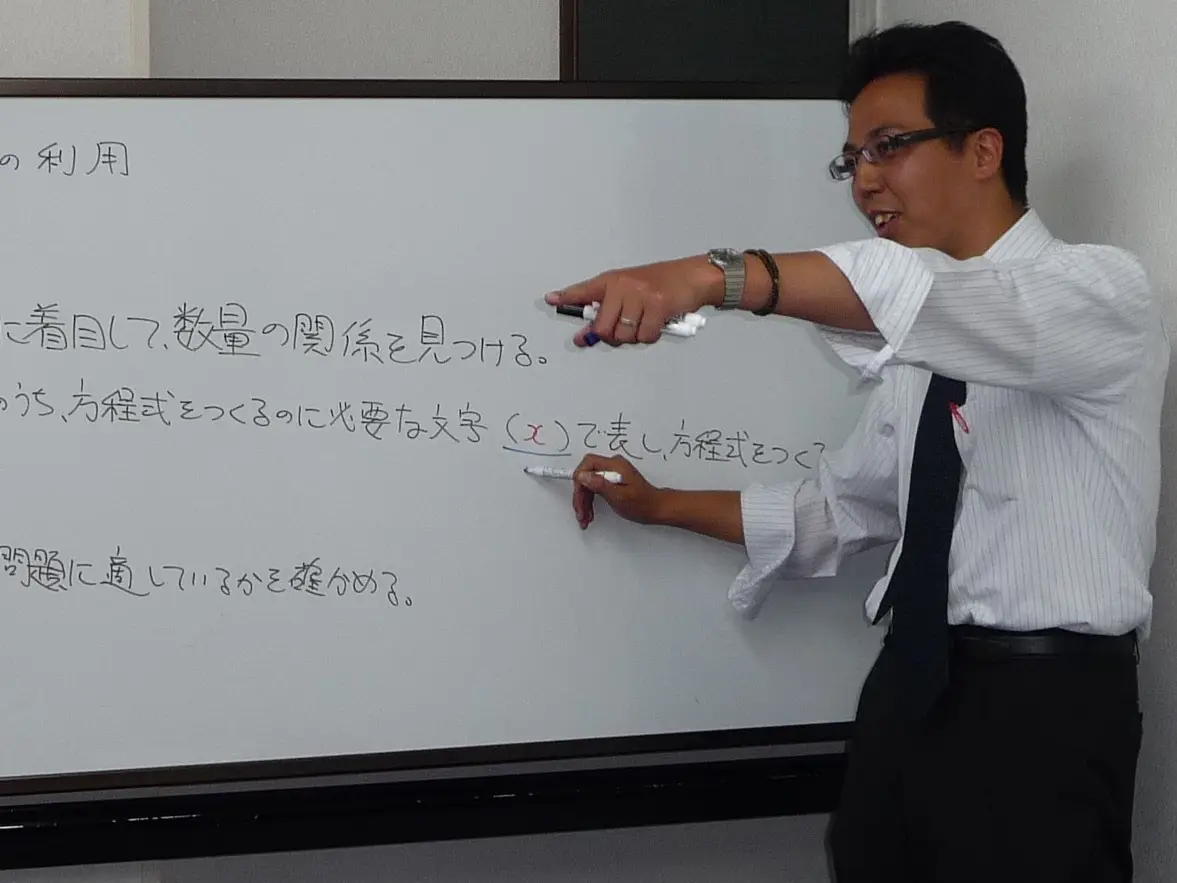 の利用
に着目して、数量の関係を見つける。
のうち、方程式をつくるのに必要な文字(x)で表し、方程式をつく
問題に適しているかを確かめる。